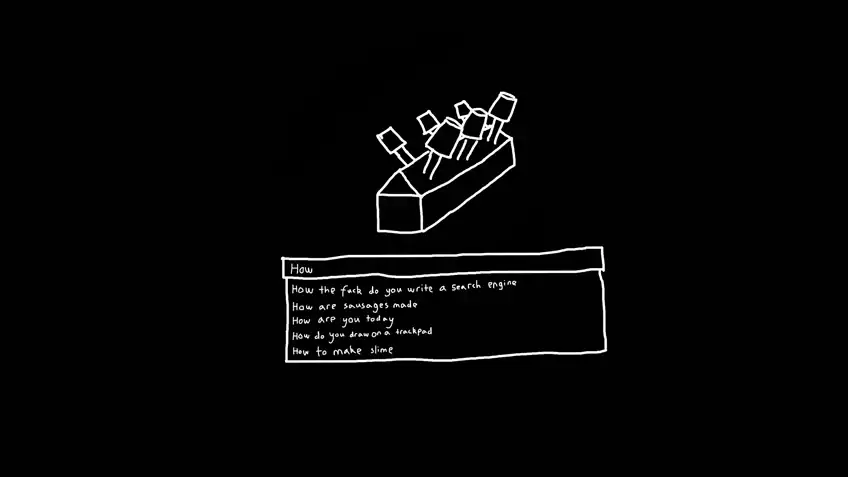 How
How the fuck do you write a search engine
How are sausages made
How are you today
How do you draw on a trackpad
How to make slime